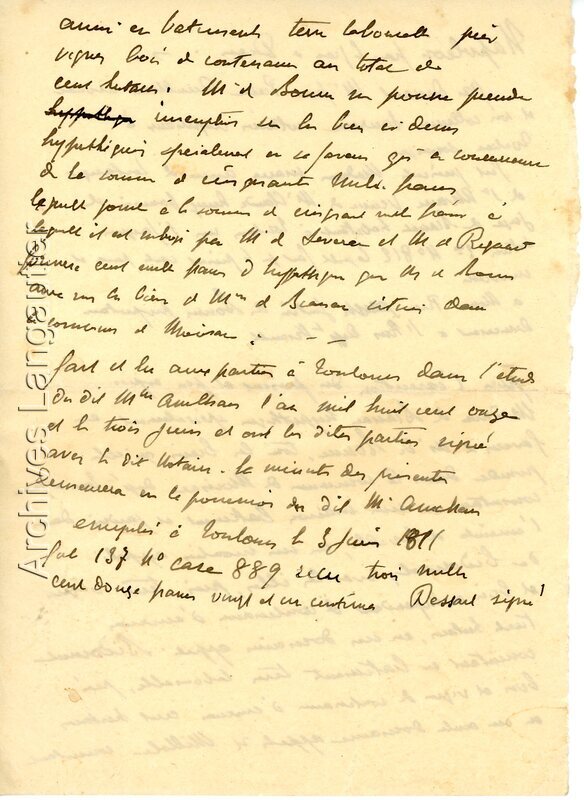 aussi en batiments terre labourable près
vignes bois de contenance au total de
cent hectares. Mr de Bonne ne pourra prendre
hypothèque inscription sur les biens ci dessus
hypothéqués specialement en sa faveur qu'à concurrence
de la somme de cinquante mille francs
laquelle jointe à la somme de cinquante mille francs à
laquelle il est subrogé par Mr de Severac et Mr de
cent mille francs d'hypothèque que Mr de Bonne
aura sur les biens de Mme de situés dans
la commune de
fait et lu aux parties à Toulouse dans l'etude
du dit Me l'an mil huit cent onze
et le trois Juin et ont les dites parties signé
avec le dit Notaire. la minute des presentes
demeurera en la possession du dit Me
enregistré à Toulouse le 3 Juin 1811
fol 137 No case 889 reçu trois mille
cent douze francs vingt et un centimes Dessart signé
Archives Langautier